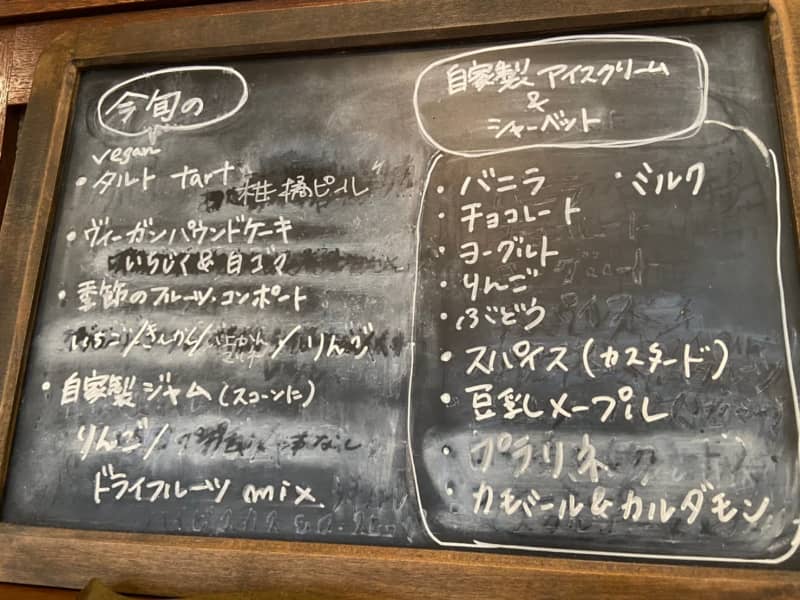 今旬の
vegan
・タルト tart 柑橘ピール
・ヴィーガンパウンドケーキ
いちじく&白ゴマ
・季節のフルーツ・コンポート
いちご/きんかん/ /りんご
・自家製ジャム(スコーンに)
りんご/
ドライフルーツ mix
自家製アイスクリーム
&
シャーベット
・バニラ ・ミルク
・チョコレート
・ヨーグルト
・りんご
・ぶどう
・スパイス(カスタード)
・豆乳メープル
・プラリネ
・カモミール&カルダモン